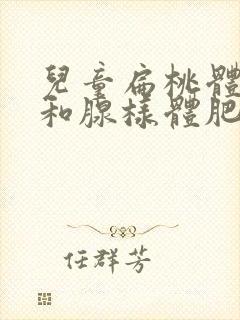 兒童扁桃體
和腺樣體肥
任群芳